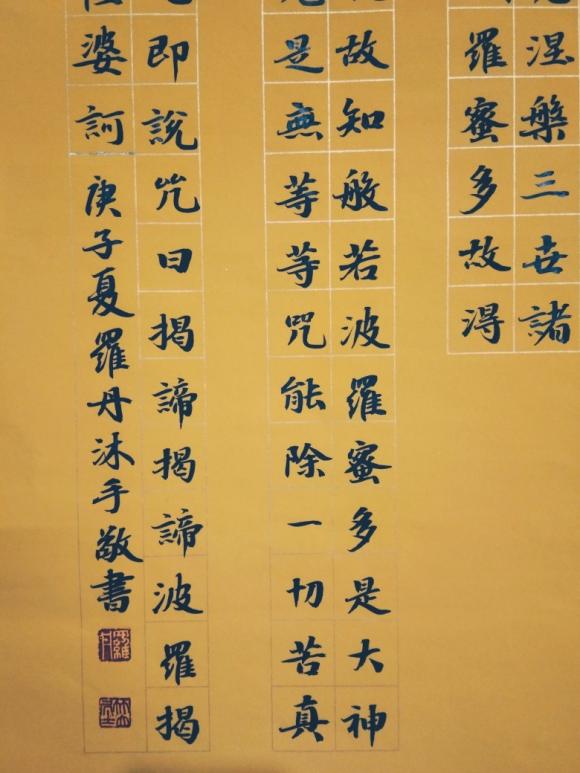 涅槃三世諸
羅蜜多故得
故知般若波羅蜜多是大神
是無等等咒能除一切苦真
即說咒曰揭諦揭諦波羅揭
婆訶庚子夏羅丹沐手敬書